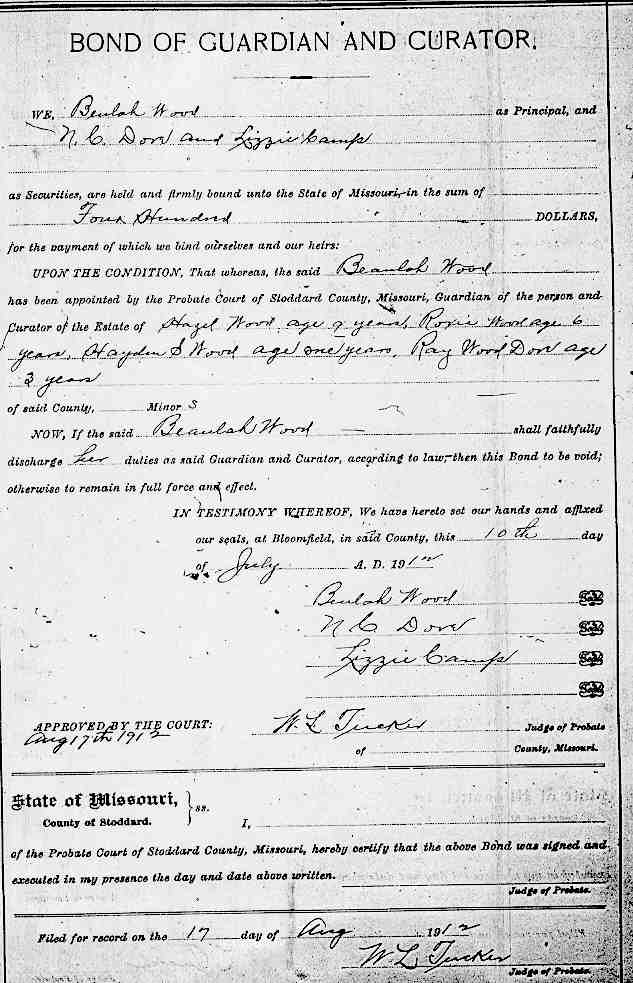 BOND OF GUARDIAN AND CURATOR.
WE, Beulah Wood as Principal, and
N. C. Dorr and Lizzie Camp
as Securities, are held and firmly bound unto the State of Missouri, in the sum of
Four Hundred DOLLARS,
for the payment of which we bind ourselves and our heirs:
UPON THE CONDITION, That whereas, the said Beaulah Wood
has been appointed by the Probate Court of Stoddard County, Missouri, Guardian of the person and
Curator of the Estate of Hazel Wood age 9 years, Roxie Wood age 6
years, Hayden S Wood age one years, Ray Wood Dorr age
3 years
of said County, Minor S
NOW, If the said Beaulah Wood shall faithfully
discharge her duties as said Guardian and Curator, according to law, then this Bond to be void;
otherwise to remain in full force and effect.
IN TESTIMONY WHEREOF, We have hereto set our hands and affixed
our seals, at Bloomfield, in said County, this 10th day
of July A. D. 1912
Beulah Wood Seal
N C Dorr Seal
Lizzie Camp Seal
Seal
APPROVED BY THE COURT: W. L. Tucker Judge of Probate
Aug 17th 1912 of County, Missouri.
State of Missouri, ss.
County of Stoddard. I,
of the Probate Court of Stoddard County, Missouri, hereby certify that the above Bond was signed and
executed in my presence the day and date above written.
Judge of Probate.
Filed for record on the 17 day of Aug 1912
W. L. Tucker
Judge of Probate.